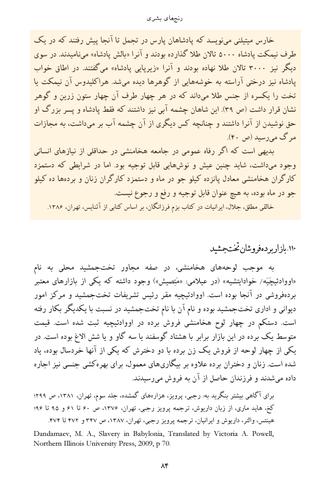 رنج‌های بشری
خارس میتیلنی می‌نویسد که پادشاهان پارس در تجمل تا آنجا پیش رفتند که در یک
طرف نیمکت پادشاه ۵۰۰۰ تالان طلا گذارده بودند و آنرا «بالش پادشاه» می‌نامیدند. در سوی
دیگر نیز ۳۰۰۰ تالان طلا نهاده بودند و آنرا «زیرپایی پادشاه» می‌گفتند. در اطاق خواب
پادشاه نیز درختی آراسته به خوشه‌هایی از گوهرها دیده می‌شد. هراکلیدوس آن نیمکت یا
تخت را یکسره از جنس طلا می‌داند که در هر چهار طرف آن چهار ستون زرین و گوهر
نشان قرار داشت (ص ۳۹). این شاهان چشمه آبی نیز داشتند که فقط پادشاه و پسر بزرگ او
حق نوشیدن از آنرا داشتند و چنانچه کس دیگری از آن چشمه آب بر می‌داشت، به مجازات
مرگ می‌رسید (ص ۴۰).
بدیهی است که اگر رفاه عمومی در جامعه هخامنشی در حداقلی از نیازهای انسانی
وجود می‌داشت، شاید چنین عیش و نوش‌هایی قابل توجیه بود. اما در شرایطی که دستمزد
کارگران هخامنشی معادل پانزده کیلو جو در ماه و دستمزد کارگران زنان و برده‌ها ده کیلو
جو در ماه بوده، به هیچ عنوان قابل توجیه و رفع و رجوع نیست.
خالقی مطلق، جلال، ایرانیات در کتاب بزم فرزانگان، بر اساس کتابی از آثنایس، تهران، ۱۳۸۶.
۱۱۰. بازار برده‌فروشان تخت‌جمشید
به موجب لوحه‌های هخامنشی، در صفه مجاور تخت‌جمشید محلی به نام
برده‌فروشی در آنجا بوده است. اووادئیچیه مقر رئیس تشریفات تخت‌جمشید و مرکز امور
دیوانی و اداری تخت‌جمشید بوده و نام آن با نام تخت‌جمشید در نسبت با یکدیگر بکار رفته
است. دستکم در چهار لوح هخامنشی فروش برده در اووادئیچیه ثبت شده است. قیمت
متوسط یک برده در این بازار برابر با هشتاد گوسفند یا سه گاو و یا شش الاغ بوده است. در
یکی از چهار لوحه از فروش یک زن برده با دو دخترش که یکی از آنها خردسال بوده، یاد
شده است. زنان و دختران برده علاوه بر بیگاری‌های معمول، برای بهره‌کشی جنسی نیز اجاره
داده می‌شدند و فرزندان حاصل از آن به فروش می‌رسیدند.
برای آگاهی بیشتر بنگرید به: رجبی، پرویز، هزاره‌های گمشده، جلد سوم، تهران، ۱۳۸۱، ص ۲۹۹؛
کخ، هاید ماری، از زبان داریوش، ترجمه پرویز رجبی، تهران، ۱۳۷۶، ص ۶۰ تا ۶۱ و ۹۵ تا ۹۶؛
هینتس، والتر، داریوش و ایرانیان، ترجمه پرویز رجبی، تهران، ۱۳۸۷، ص ۳۴۷ و ۴۷۲ تا ۴۷۴؛
Dandamaev, M. A., Slavery in Babylonia, Translated by Victoria A. Powell,
Northern Illinois University Press, 2009, p 70.
۸۴